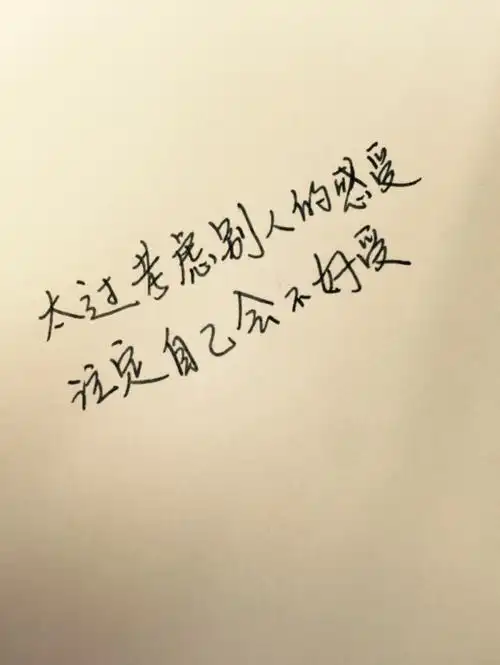 太过考虑别人的感受
注定自己会不好受